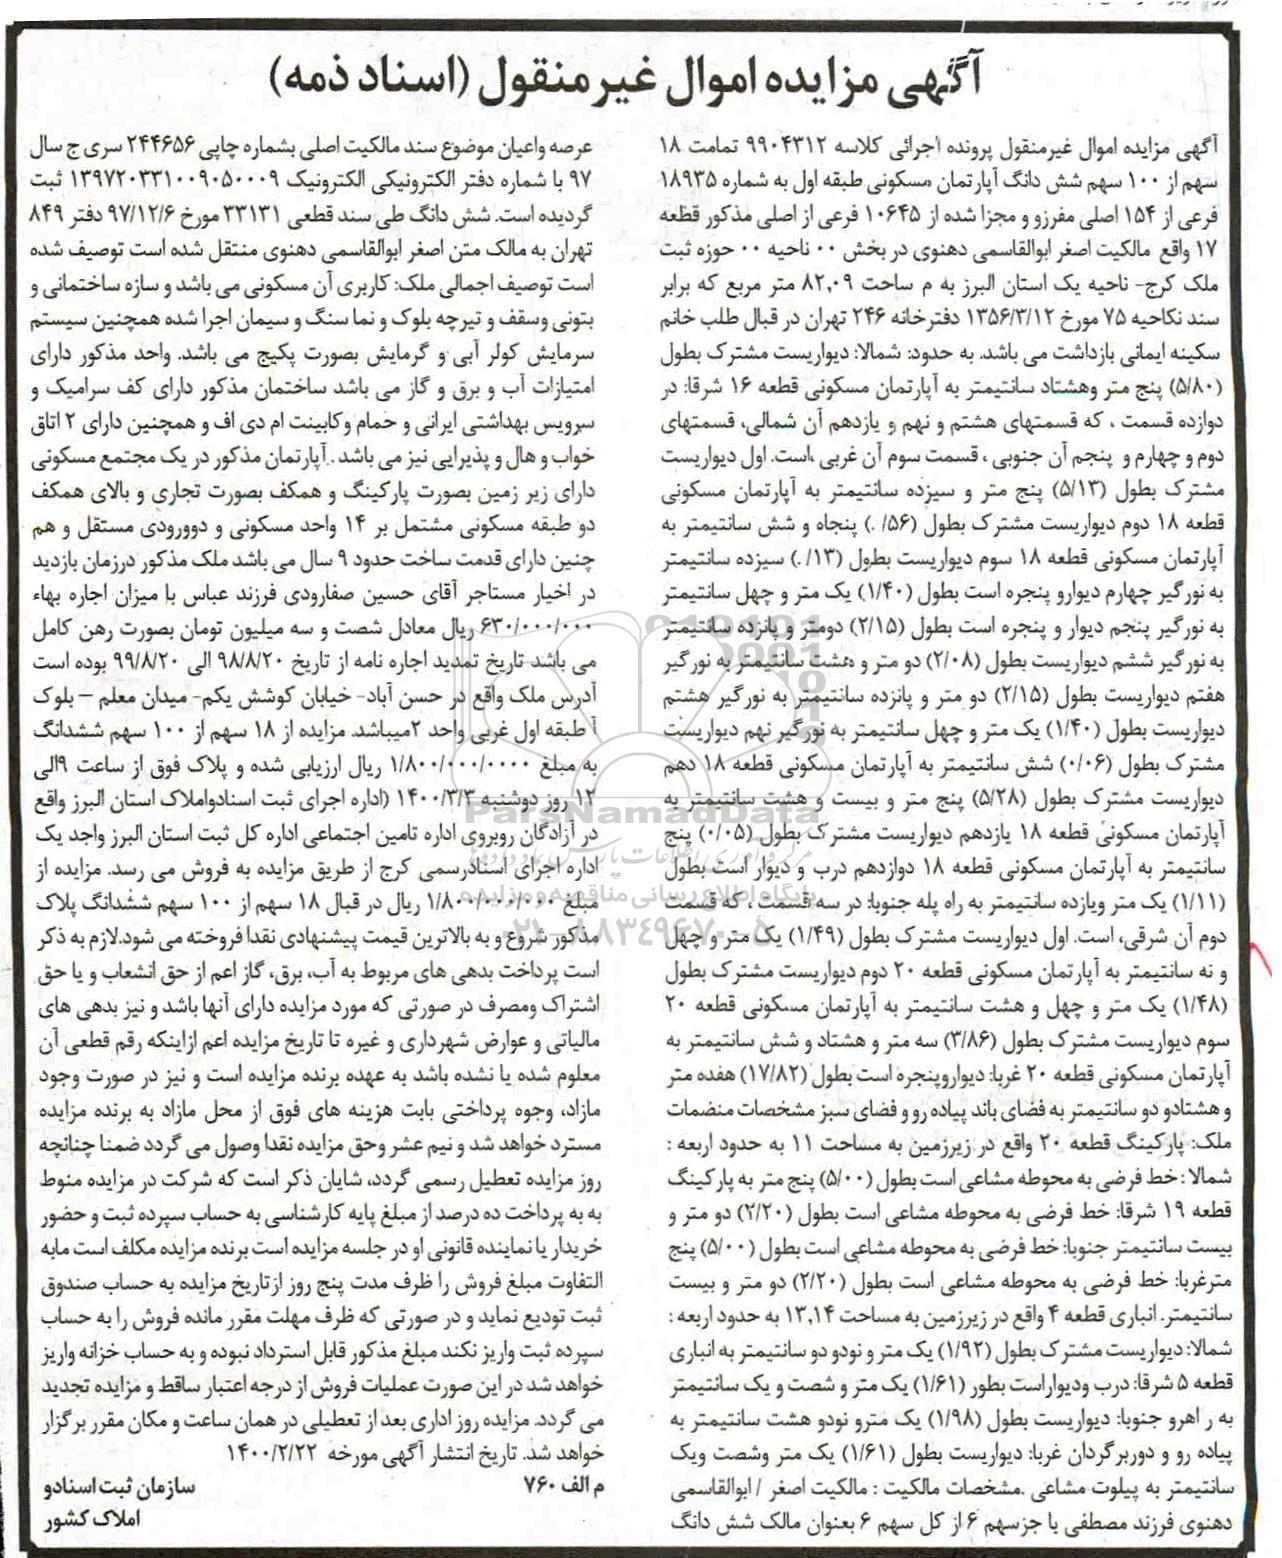 آگهی مزایده اموال غیرمنقول (اسناد ذمه)
آگهی مزایده اموال غیرمنقول پرونده اجرائی کلاسه ۹۹۰۴۳۱۲ تمامت ۱۸
سهم از ۱۰۰ سهم شش دانگ آپارتمان مسکونی طبقه اول به شماره ۱۸۹۳۵
فرعی از ۱۵۴ اصلی مفرزو و مجزا شده از ۱۰۶۴۵ فرعی از اصلی مذکور قطعه
۱۷ واقع مالکیت اصغر ابوالقاسمی دهنوی در بخش ۰۰ ناحیه ۰۰ حوزه ثبت
ملک کرج- ناحیه یک استان البرز به م ساحت ۸۲,۰۹ متر مربع که برابر
سند نکاحیه ۷۵ مورخ ۱۳۵۶/۳/۱۲ دفترخانه ۲۴۶ تهران در قبال طلب خانم
سکینه ایمانی بازداشت می باشد. به حدود: شمالا: دیواریست مشترک بطول
(۵/۸۰) پنج متر وهشتاد سانتیمتر به آپارتمان مسکونی قطعه ۱۶ شرقا: در
دوازده قسمت ، که قسمتهای هشتم و نهم و یازدهم آن شمالی، قسمتهای
دوم و چهارم و پنجم آن جنوبی ، قسمت سوم آن غربی ،است. اول دیواریست
مشترک بطول (۵/۱۳) پنج متر و سیزده سانتیمتر به آپارتمان مسکونی
قطعه ۱۸ دوم دیواریست مشترک بطول (۵۶/ .) پنجاه و شش سانتیمتر به
آپارتمان مسکونی قطعه ۱۸ سوم دیواریست بطول (۱۳/ .) سیزده سانتیمتر
به نورگیر چهارم دیوارو پنجره است بطول (۱/۴۰) یک متر و چهل سانتیمتر
به نورگیر پنجم دیوار و پنجره است بطول (۲/۱۵) دومتر و پانزده سانتیمتر
به نورگیر ششم دیواریست بطول (۲/۰۸) دو متر و هشت سانتیمتر به نورگیر
هفتم دیواریست بطول (۲/۱۵) دو متر و پانزده سانتیمتر به نورگیر هشتم
دیواریست بطول (۱/۴۰) یک متر و چهل سانتیمتر به نورگیر نهم دیواریست
مشترک بطول (۰/۰۶) شش سانتیمتر به آپارتمان مسکونی قطعه ۱۸ دهم
دیواریست مشترک بطول (۵/۲۸) پنج متر و بیست و هشت سانتیمتر به
آپارتمان مسکونی قطعه ۱۸ یازدهم دیواریست مشترک بطول (۰/۰۵) پنج
سانتیمتر به آپارتمان مسکونی قطعه ۱۸ دوازدهم درب و دیوار است بطول
(۱/۱۱) یک متر ویازده سانتیمتر به راه پله جنوبا: در سه قسمت ، که قسمت
دوم آن شرقی، است. اول دیواریست مشترک بطول (۱/۴۹) یک متر و چهل
و نه سانتیمتر به آپارتمان مسکونی قطعه ۲۰ دوم دیواریست مشترک بطول
(۱/۴۸) یک متر و چهل و هشت سانتیمتر به آپارتمان مسکونی قطعه ۲۰
سوم دیواریست مشترک بطول (۳/۸۶) سه متر و هشتاد و شش سانتیمتر به
آپارتمان مسکونی قطعه ۲۰ غربا: دیوارو‌پنجره است بطول (۱۷/۸۲) هفده متر
و هشتادو دو سانتیمتر به فضای باند پیاده رو و فضای سبز مشخصات منضمات
ملک: پارکینگ قطعه ۲۰ واقع در زیرزمین به مساحت ۱۱ به حدود اربعه :
شمالا : خط فرضی به محوطه مشاعی است بطول (۵/۰۰) پنج متر به پارکینگ
قطعه ۱۹ شرقا: خط فرضی به محوطه مشاعی است بطول (۲/۲۰) دو متر و
بیست سانتیمتر جنوبا: خط فرضی به محوطه مشاعی است بطول (۵/۰۰) پنج
مترغربا: خط فرضی به محوطه مشاعی است بطول (۲/۲۰) دو متر و بیست
سانتیمتر. انباری قطعه ۴ واقع در زیرزمین به مساحت ۱۳,۱۴ به حدود اربعه :
شمالا: دیواریست مشترک بطول (۱/۹۲) یک متر و نودو دو سانتیمتر به انباری
قطعه ۵ شرقا: درب ودیواراست بطور (۱/۶۱) یک متر و شصت و یک سانتیمتر
به ر اهرو جنوبا: دیواریست بطول (۱/۹۸) یک مترو نودو هشت سانتیمتر به
پیاده رو و دوربرگردان غربا: دیواریست بطول (۱/۶۱) یک متر وشصت ویک
سانتیمتر به پیلوت مشاعی .مشخصات مالکیت : مالکیت اصغر / ابوالقاسمی
دهنوی فرزند مصطفی با جزسهم ۶ از کل سهم ۶ بعنوان مالک شش دانگ
عرصه واعیان موضوع سند مالکیت اصلی بشماره چاپی ۲۴۴۶۵۶ سری ج سال
۹۷ با شماره دفتر الکترونیکی الکترونیک ۱۳۹۷۲۰۳۳۱۰۰۹۰۵۰۰۰۹ ثبت
گردیده است. شش دانگ طی سند قطعی ۳۳۱۳۱ مورخ ۹۷/۱۲/۶ دفتر ۸۴۹
تهران به مالک متن اصغر ابوالقاسمی دهنوی منتقل شده است توصیف شده
است توصیف اجمالی ملک: کاربری آن مسکونی می باشد و سازه ساختمانی و
بتونی وسقف و تیرچه بلوک و نما سنگ و سیمان اجرا شده همچنین سیستم
سرمایش کولر آبی و گرمایش بصورت پکیج می باشد. واحد مذکور دارای
امتیازات آب و برق و گاز می باشد ساختمان مذکور دارای کف سرامیک و
سرویس بهداشتی ایرانی و حمام و کابینت ام دی اف و همچنین دارای ۲ اتاق
خواب و هال و پذیرایی نیز می باشد . آپارتمان مذکور در یک مجتمع مسکونی
دارای زیر زمین بصورت پارکینگ و همکف بصورت تجاری و بالای همکف
دو طبقه مسکونی مشتمل بر ۱۴ واحد مسکونی و دوورودی مستقل و هم
چنین دارای قدمت ساخت حدود ۹ سال می باشد ملک مذکور درزمان بازدید
در اخیار مستاجر آقای حسین صفارودی فرزند عباس با میزان اجاره بهاء
۶۳۰/۰۰۰/۰۰۰ ریال معادل شصت و سه میلیون تومان بصورت رهن کامل
می باشد تاریخ تمدید اجاره نامه از تاریخ ۹۸/۸/۲۰ الی ۹۹/۸/۲۰ بوده است
آدرس ملک واقع در حسن آباد- خیابان کوشش یکم- میدان معلم – بلوک
آ طبقه اول غربی واحد ۲میباشد. مزایده از ۱۸ سهم از ۱۰۰ سهم ششدانگ
به مبلغ ۱/۸۰۰/۰۰۰/۰۰۰۰ ریال ارزیابی شده و پلاک فوق از ساعت ۹الی
۱۲ روز دوشنبه ۱۴۰۰/۳/۳ (اداره اجرای ثبت اسنادواملاک استان البرز واقع
در آزادگان روبروی اداره تامین اجتماعی اداره کل ثبت استان البرز واحد یک
اداره اجرای اسنادرسمی کرج از طریق مزایده به فروش می رسد. مزایده از
مبلغ ۱/۸۰۰/۰۰۰/۰۰۰ ریال در قبال ۱۸ سهم از ۱۰۰ سهم ششدانگ پلاک
مذکور شروع و به بالاترین قیمت پیشنهادی نقدا فروخته می شود.لازم به ذکر
است پرداخت بدهی های مربوط به آب، برق، گاز اعم از حق انشعاب و یا حق
اشتراک ومصرف در صورتی که مورد مزایده دارای آنها باشد و نیز بدهی های
مالیاتی و عوارض شهرداری و غیره تا تاریخ مزایده اعم ازاینکه رقم قطعی آن
معلوم شده یا نشده باشد به عهده برنده مزایده است و نیز در صورت وجود
مازاد، وجوه پرداختی بابت هزینه های فوق از محل مازاد به برنده مزایده
مسترد خواهد شد و نیم عشر وحق مزایده نقدا وصول می گردد ضمنا چنانچه
روز مزایده تعطیل رسمی گردد، شایان ذکر است که شرکت در مزایده منوط
به به پرداخت ده درصد از مبلغ پایه کارشناسی به حساب سپرده ثبت و حضور
خریدار یا نماینده قانونی او در جلسه مزایده است برنده مزایده مکلف است مابه
التفاوت مبلغ فروش را ظرف مدت پنج روز ازتاریخ مزایده به حساب صندوق
ثبت تودیع نماید و در صورتی که ظرف مهلت مقرر مانده فروش را به حساب
سپرده ثبت واریز نکند مبلغ مذکور قابل استرداد نبوده و به حساب خزانه واریز
خواهد شد در این صورت عملیات فروش از درجه اعتبار ساقط و مزایده تجدید
می گردد. مزایده روز اداری بعد از تعطیلی در همان ساعت و مکان مقرر برگزار
خواهد شد. تاریخ انتشار آگهی مورخه ۱۴۰۰/۲/۲۲
م الف ۷۶۰
سازمان ثبت اسنادو
املاک کشور
ParsNamadData
پایگاه اطلاع رسانی مناقصه و مزایده
۰۲۱-۸۸۳۴۹۶۷۰-۵